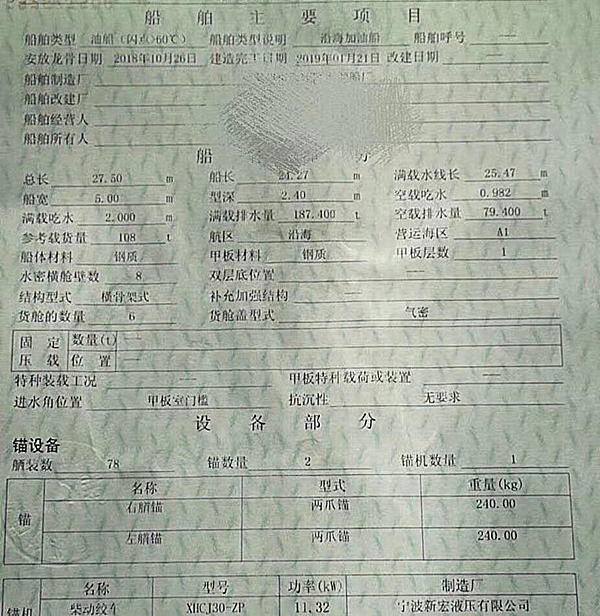 船舶主要项目
船舶类型 油船(闪点>60℃) 船舶类型说明 沿海加油船 船舶呼号 —
安放龙骨日期 2018年10月26日 建造完工日期 2019年01月21日 改建日期 —
船舶制造厂
船舶改建厂
船舶经营人
船舶所有人
船 分
总长 27.50 m 船长 24.27 m 满载水线长 25.47 m
船宽 5.00 m 型深 2.40 m 空载吃水 0.982 m
满载吃水 2.000 m 满载排水量 187.400 t 空载排水量 79.400 t
参考载货量 108 t 航区 沿海 营运海区 A1
船体材料 钢质 甲板材料 钢质 甲板层数 1
水密横舱壁数 8 双层底位置 —
结构型式 横骨架式 补充加强结构 —
货舱的数量 6 货舱盖型式 气密
固定 数量(t)
压载 位置
特种装载工况 — 甲板特种载荷或装置 —
进水角位置 甲板室门槛 抗沉性 无要求
设备部分
锚设备
舾装数 78 锚数量 2 锚机数量 1
名称 型式 重量(kg)
锚 右艏锚 两爪锚 240.00
左艏锚 两爪锚 240.00
名称 型号 功率(kW) 制造厂
锚机 柴动绞车 XHCJ30-ZP 11.32 宁波新宏液压有限公司